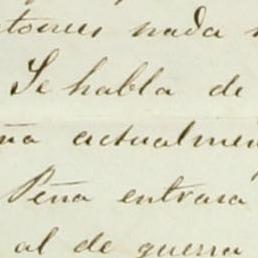 tonces nada
Se habla de
ña actualmen
Peña entrara
al de guerra